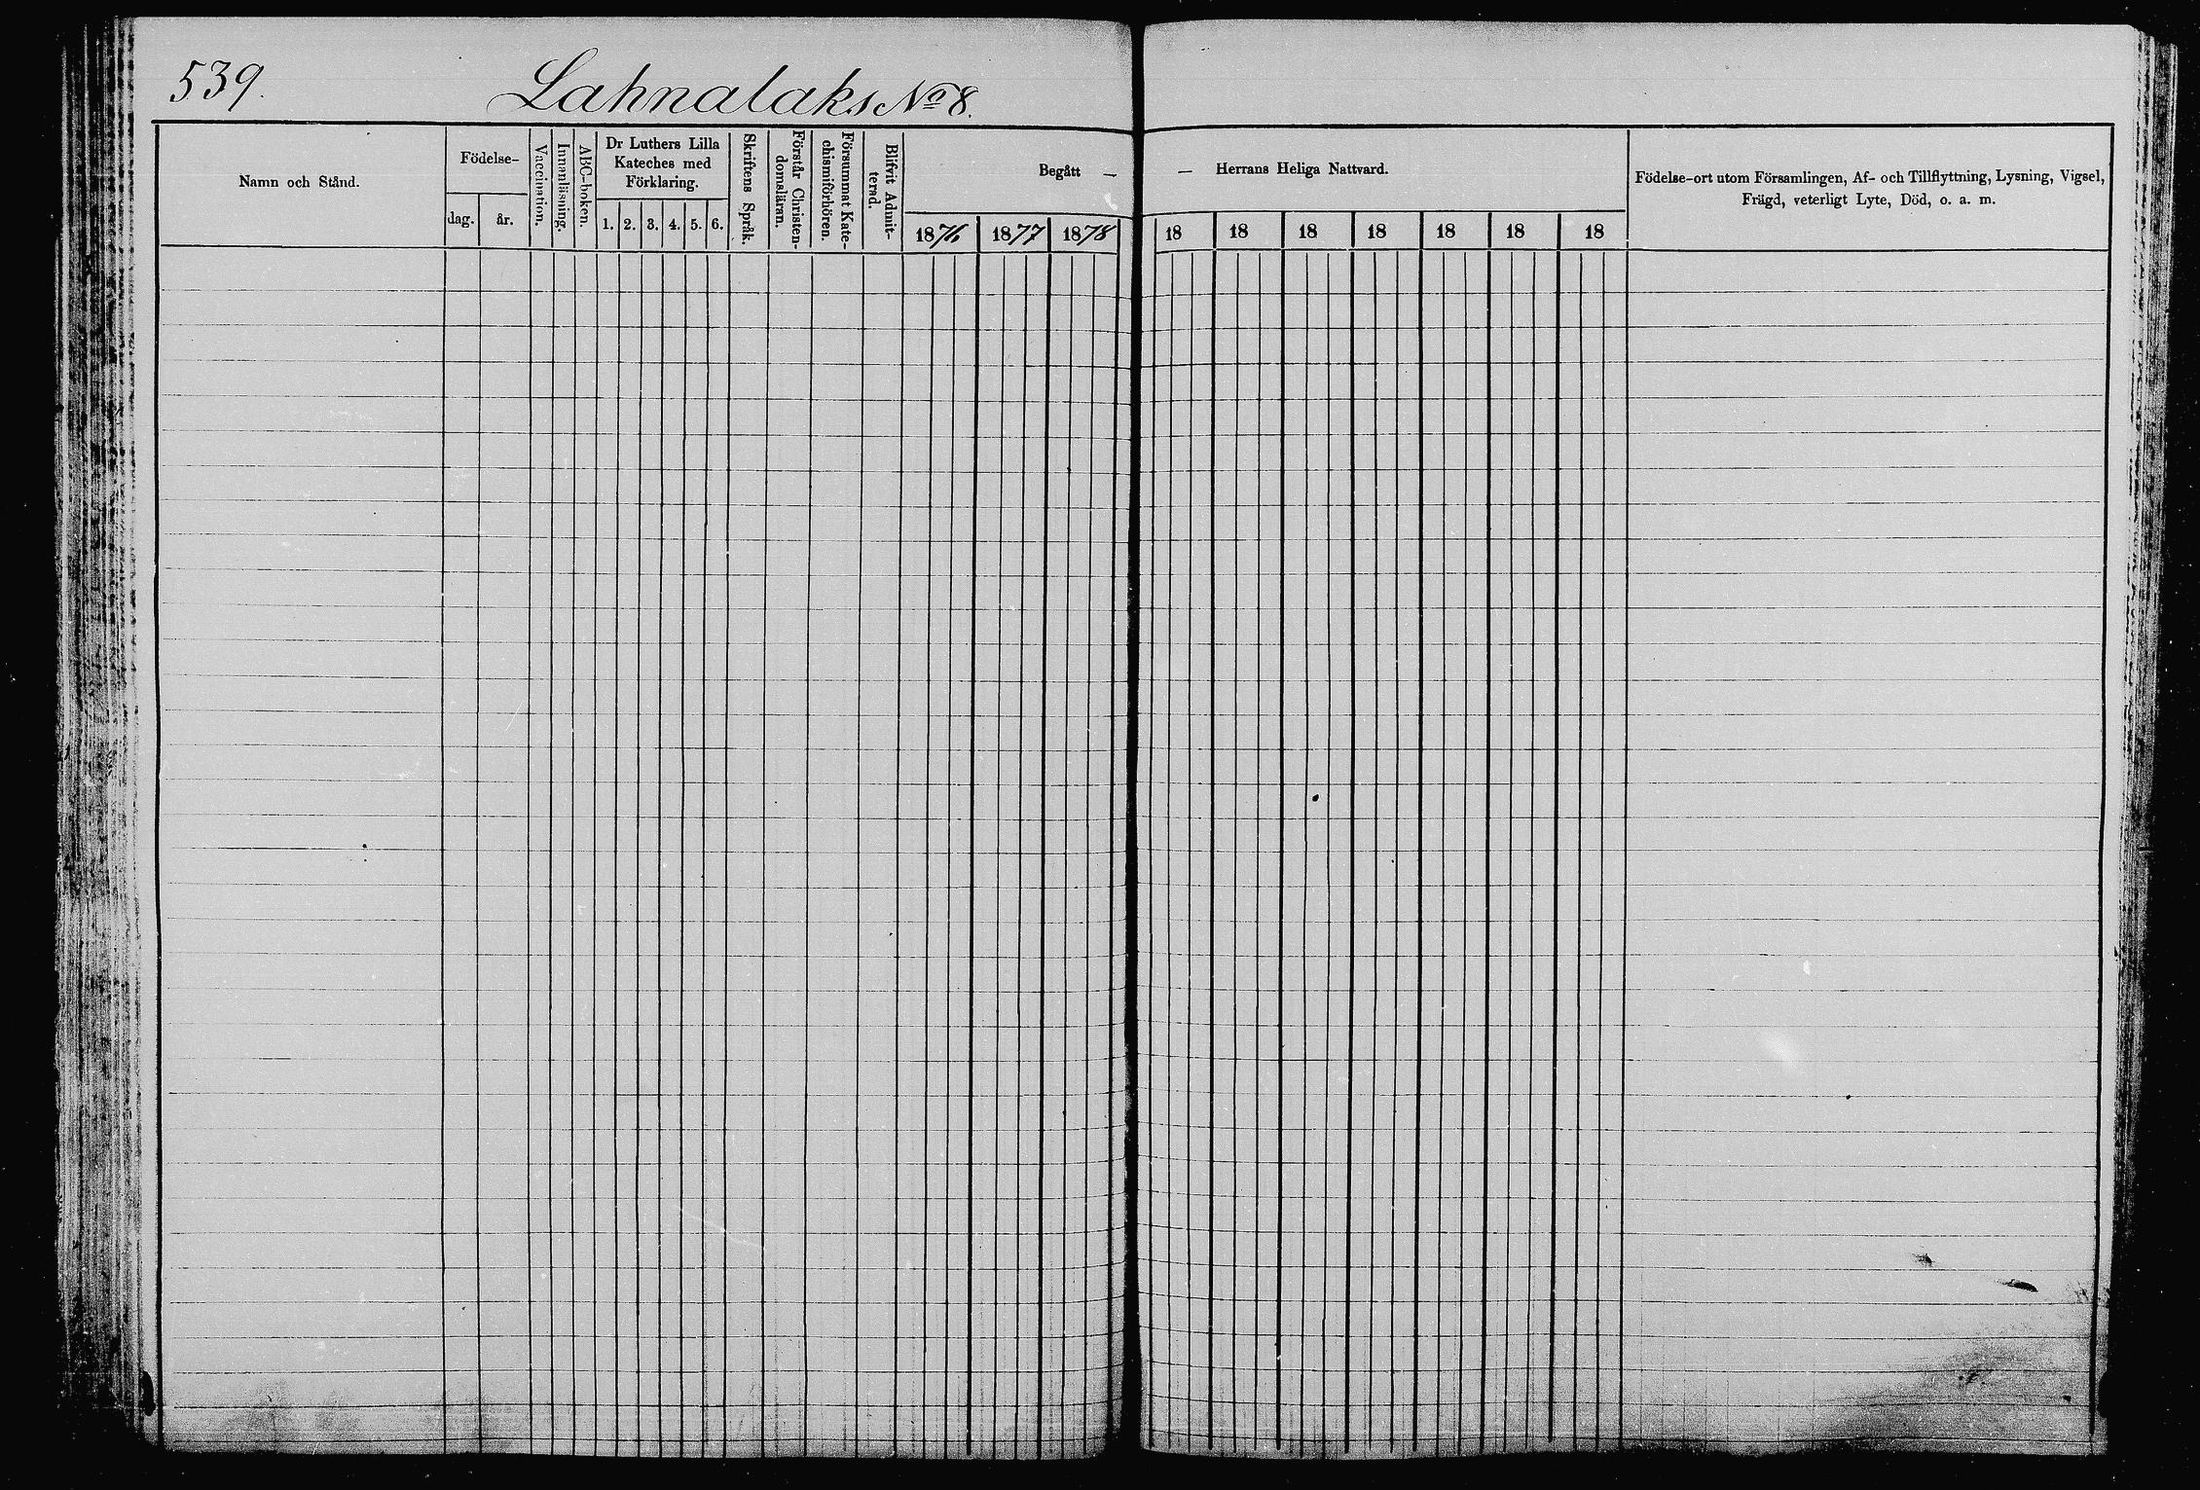 539.
Lahnalaks No 8.
Namn och Stånd.
Födelse-
dag.
år.
Vaccination.
Innanläsning.
ABC-boken.
Dr Luthers Lilla
Kateches med
Förklaring.
1. 2. 3. 4. 5. 6.
Skriftens Språk.
Förstår Christen-
domsläran.
Försummat Kate-
chismiförhören.
Blifvit Admit-
terad.
Begått —
1876 1877 1878
— Herrans Heliga Nattvard.
18 18 18 18 18 18 18
Födelse-ort utom Församlingen, Af- och Tillflyttning, Lysning, Vigsel,
Frägd, veterligt Lyte, Död, o. a. m.